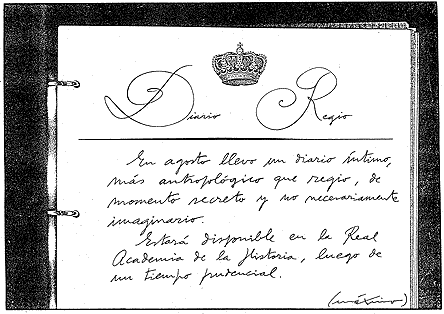 Diario Regio
En agosto llevo un diario íntimo,
más antropológico que regio, de
momento secreto y no necesariamente
imaginario.
Estará disponible en la Real
Academia de la Historia, luego de
un tiempo prudencial.
(máximo)